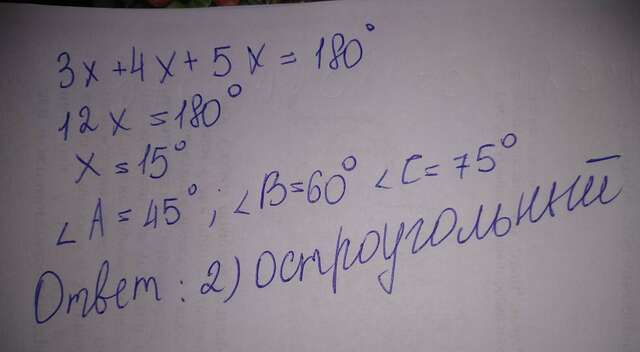 3x+4x+5x=180°
12x=180°
x=15°
∠A=45°; ∠B=60° ∠C=75°
Ответ: 2) остроугольный